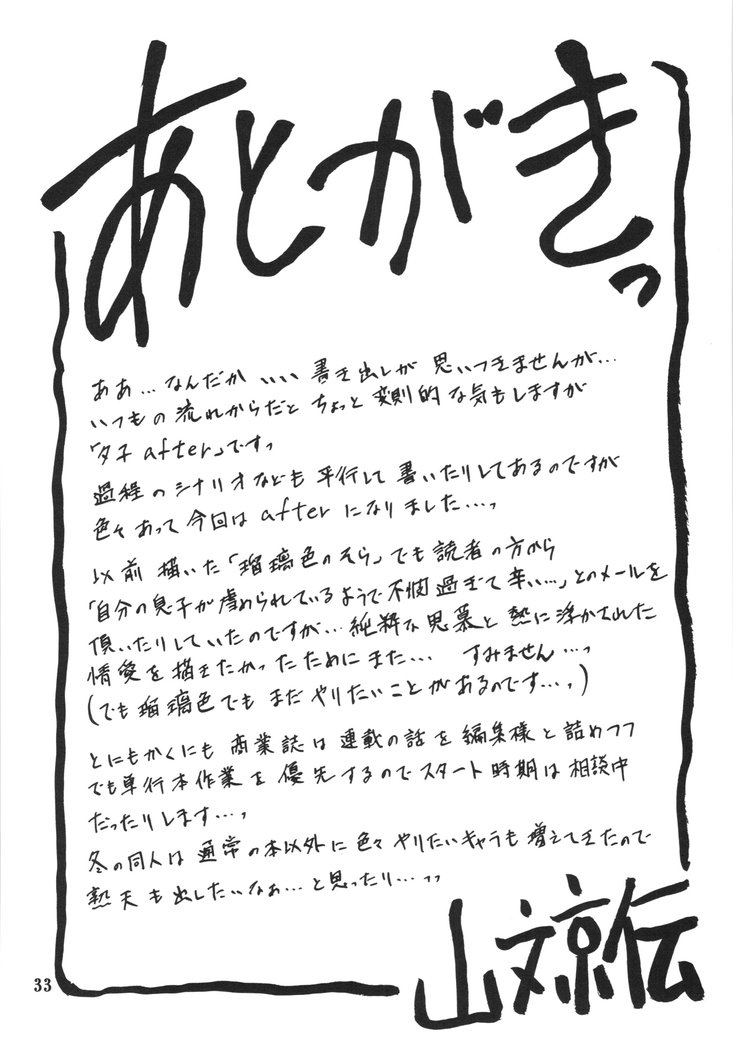 あとがきっ
ああ…なんだか いいい 書き出しが 思いつきませんが…
いつもの流れからだと ちょっと 変則的な気もしますが
「夕子after」ですっ
過程のシナリオなども平行して書いたりしてあるのですが
色々あって今回はafterになりました…っ
以前描いた「瑠璃色のそら」でも読者の方から
「自分の息子が虐められているようで不憫過ぎて辛い…」とのメールを
頂いたりしていたのですが…純粋な思慕と熱に浮かされた
情愛を描きたかったためにまた… すみません…っ
(でも瑠璃色でもまだやりたいことがあるのです…っ)
とにもかくにも 商業誌は連載の話を編集様と詰めつつ
でも単行本作業を優先するのでスタート時期は相談中
だったりします…っ
冬の同人は通常の本以外に色々やりたいキャラも増えてきたので
熱天も出したいなぁ…と思ったり…っっ
山文京伝
33